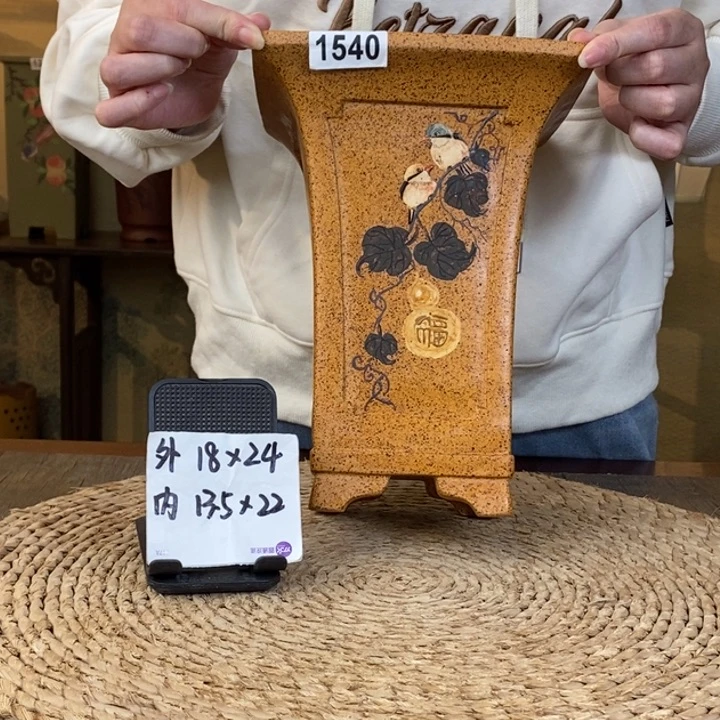 1540
福
外 18×24
内 13.5×22